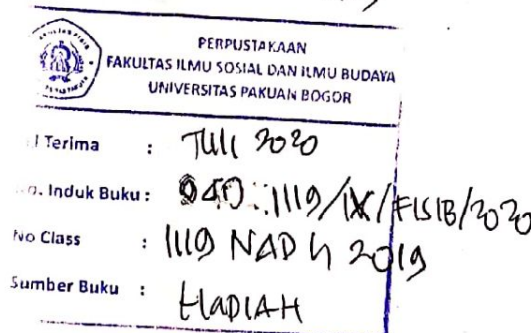 PERPUSTAKAAN
FAKULTAS ILMU SOSIAL DAN ILMU BUDAYA
UNIVERSITAS PAKUAN BOGOR
l Terima : Juli 2020
. Induk Buku : 040.1119/IX/FISIB/2020
No Class : 1119 NAD 4 2019
Sumber Buku : HADIAH